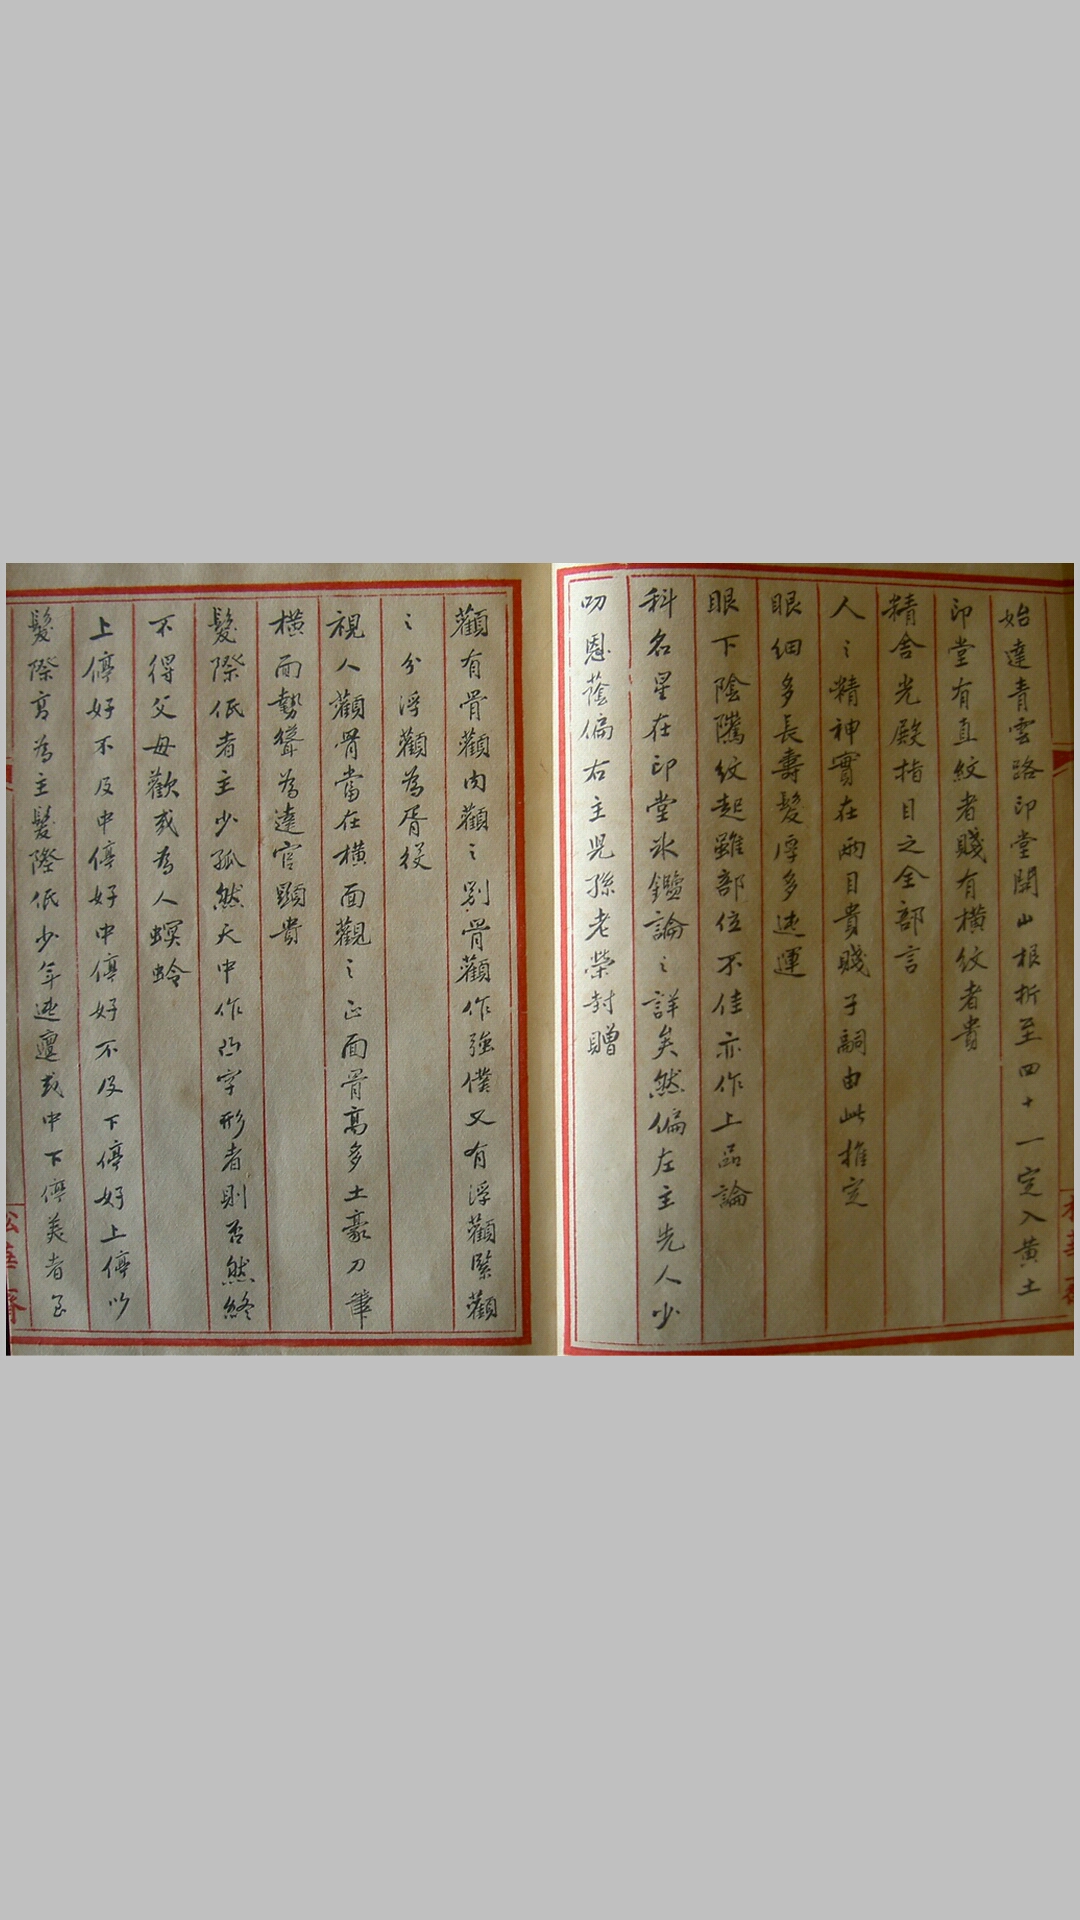 始達青雲路印堂開山根折至四十一定入黃土
印堂有直紋者賤有橫紋者貴
精舍光殿指目之全部言
人之精神實在兩目貴賤子嗣由此推定
眼細多長壽髮浮多迍運
眼下陰騭紋起雖部位不佳亦作上品論
科名星在印堂冰鑑論之詳矣然偏左主先人少
叨恩蔭偏右主児孫老榮封贈
顴有骨顴肉顴之別骨顴作強僕又有浮顴緊顴
之分浮顴為胥役
視人顴骨當在橫面觀之正面骨高多土豪刀筆
橫面勢聳為達官顯貴
髮際低者主少孤然天中作凸字形者則否然終
不得父母歡或為人螟蛉
上停好不及中停好中停好不及下停好上停以
髮際高為主髮際低少年迍邅或中下停美者
松華齋